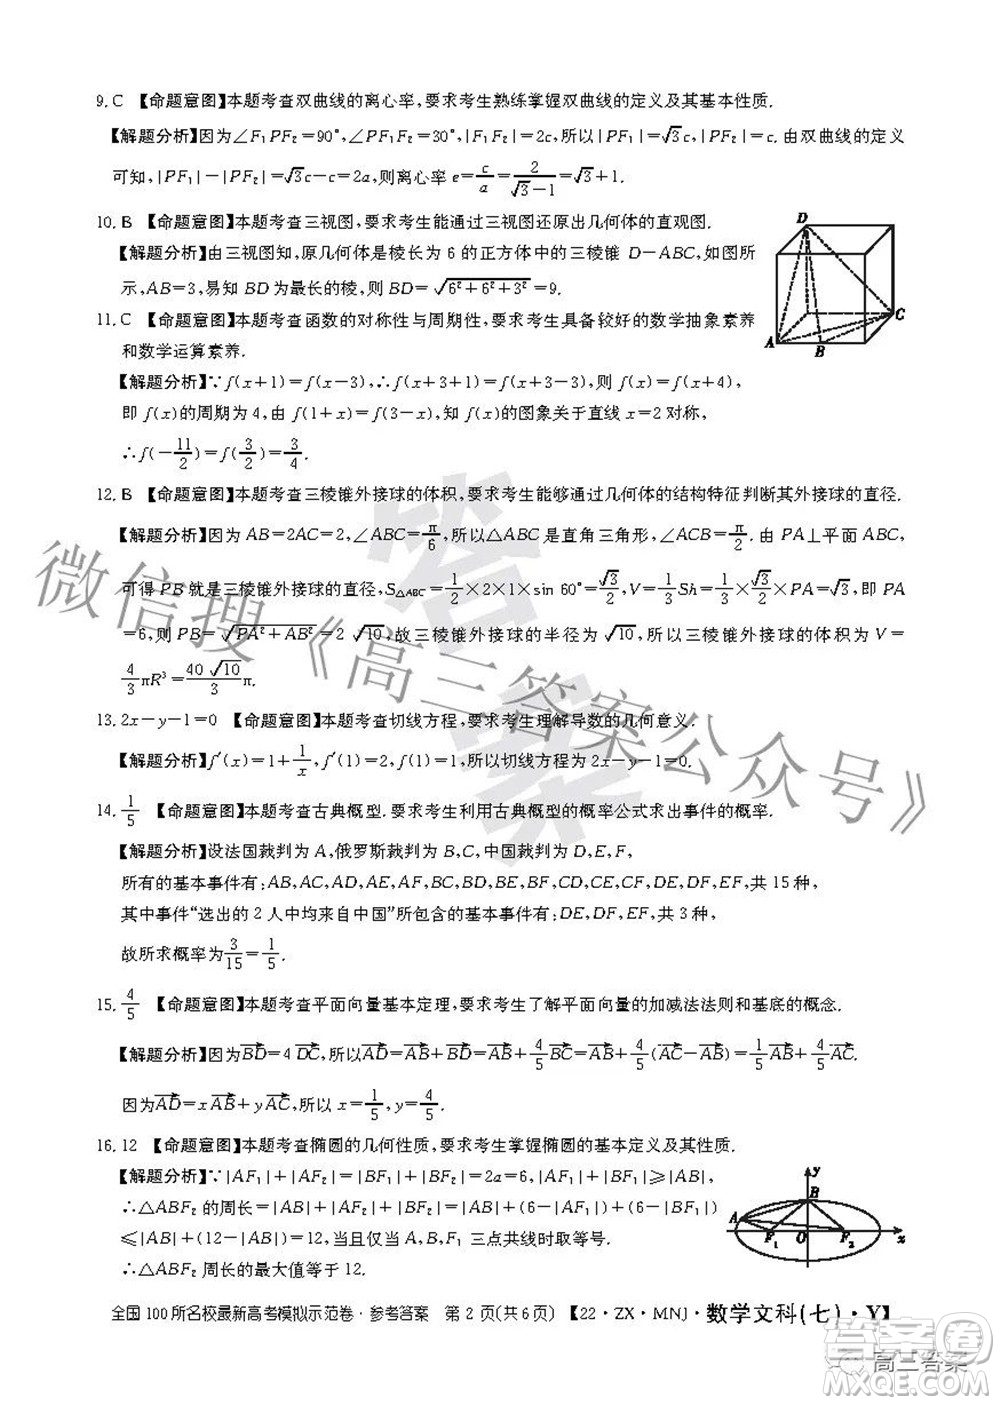 9. C 【命题意图】本题考查双曲线的离心率,要求考生熟练掌握双曲线的定义及其基本性质.
【解题分析】因为∠F₁PF₂=90°,∠PF₁F₂=30°,|F₁F₂|=2c,所以|PF₁|=√3c,|PF₂|=c. 由双曲线的定义
可知,|PF₁|-|PF₂|=√3c-c=2a,则离心率 e=c/a=2/(√3-1)=√3+1.
10. B 【命题意图】本题考查三视图,要求考生能通过三视图还原出几何体的直观图.
【解题分析】由三视图知,原几何体是棱长为 6 的正方体中的三棱锥 D-ABC,如图所
示,AB=3,易知 BD 为最长的棱,则 BD=√(6²+6²+3²)=9.
11. C 【命题意图】本题考查函数的对称性与周期性,要求考生具备较好的数学抽象素养
和数学运算素养.
【解题分析】∵f(x+1)=f(x-3),∴f(x+3+1)=f(x+3-3),则 f(x)=f(x+4),
即 f(x)的周期为 4,由 f(1+x)=f(3-x),知 f(x)的图象关于直线 x=2 对称,
∴f(-11/2)=f(3/2)=3/4.
12. B 【命题意图】本题考查三棱锥外接球的体积,要求考生能够通过几何体的结构特征判断其外接球的直径.
【解题分析】因为 AB=2AC=2,∠ABC=π/6,所以△ABC 是直角三角形,∠ACB=π/2. 由 PA⊥平面 ABC,
可得 PB 就是三棱锥外接球的直径,S△ABC=1/2×2×1×sin 60°=√3/2,V=1/3Sh=1/3×√3/2×PA=√3,即 PA
=6,则 PB=√(PA²+AB²)=2√10,故三棱锥外接球的半径为√10,所以三棱锥外接球的体积为 V=
4/3πR³=40√10/3π.
13. 2x-y-1=0 【命题意图】本题考查切线方程,要求考生理解导数的几何意义.
【解题分析】f′(x)=1+1/x,f′(1)=2,f(1)=1,所以切线方程为 2x-y-1=0.
14. 1/5 【命题意图】本题考查古典概型.要求考生利用古典概型的概率公式求出事件的概率.
【解题分析】设法国裁判为 A,俄罗斯裁判为 B,C,中国裁判为 D,E,F,
所有的基本事件有:AB,AC,AD,AE,AF,BC,BD,BE,BF,CD,CE,CF,DE,DF,EF,共 15 种,
其中事件“选出的 2 人中均来自中国”所包含的基本事件有:DE,DF,EF,共 3 种,
故所求概率为3/15=1/5.
15. 4/5 【命题意图】本题考查平面向量基本定理,要求考生了解平面向量的加减法法则和基底的概念.
【解题分析】因为BD=4DC,所以AD=AB+BD=AB+4/5BC=AB+4/5(AC-AB)=1/5AB+4/5AC.
因为AD=xAB+yAC,所以 x=1/5,y=4/5.
16. 12 【命题意图】本题考查椭圆的几何性质,要求考生掌握椭圆的基本定义及其性质.
【解题分析】∵|AF₁|+|AF₂|=|BF₁|+|BF₂|=2a=6,|AF₁|+|BF₁|≥|AB|,
∴△ABF₂ 的周长=|AB|+|AF₂|+|BF₂|=|AB|+(6-|AF₁|)+(6-|BF₁|)
≤|AB|+(12-|AB|)=12,当且仅当 A,B,F₁ 三点共线时取等号.
∴△ABF₂ 周长的最大值等于 12.
全国 100 所名校最新高考模拟示范卷·参考答案 第 2 页(共 6 页) 【22·ZX·MNJ·数学文科(七)·Y】
D
C
A
B
y
B
A
F₁
O
F₂
x
微信搜《高三答案公众号》
答案
答案圈
高三答案